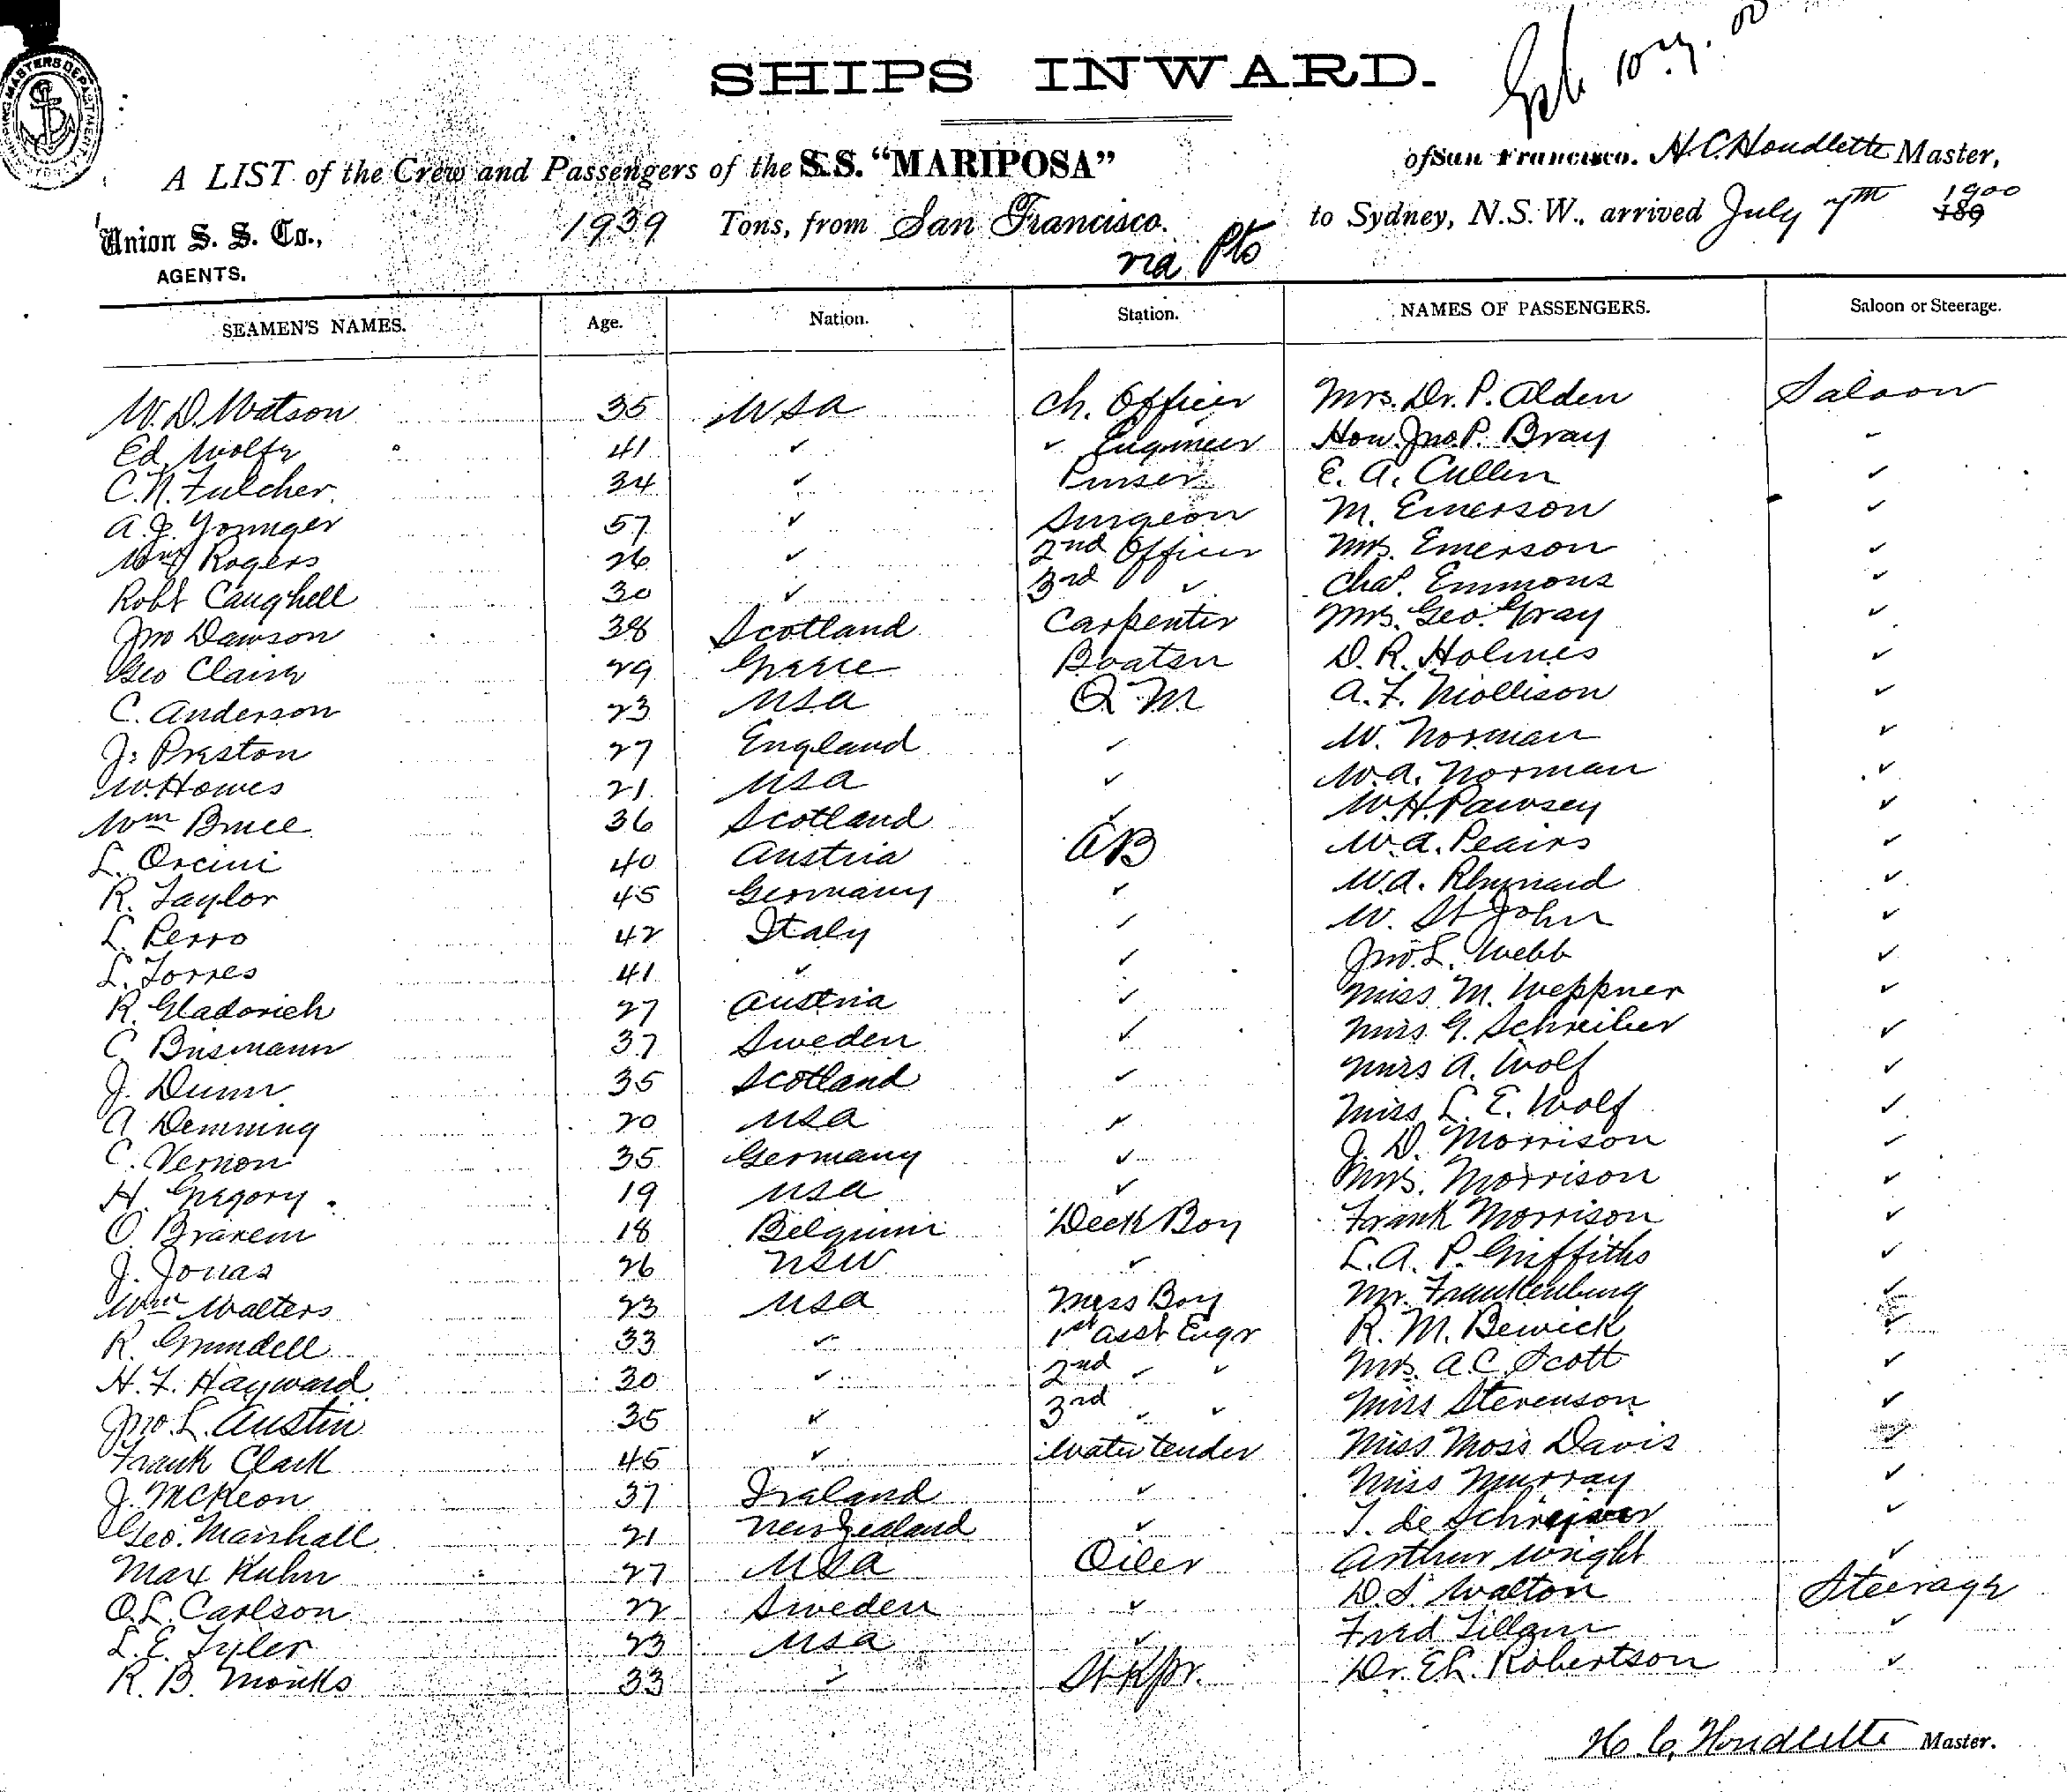 SHIPS INWARD.
A LIST of the Crew and Passengers of the S.S. "MARIPOSA" of San Francisco. H.C. Houdlette Master,
Union S. S. Co., AGENTS. 1939 Tons, from San Francisco. via Pts to Sydney, N.S.W., arrived July 7th 1900 189
SEAMEN'S NAMES. Age. Nation. Station. NAMES OF PASSENGERS. Saloon or Steerage.
W. D. Watson 35 USA Ch. Officer Mrs. Dr. P. Alden Saloon
Ed. Wolfe 41 " " Engineer Hon. Jno. P. Bray "
C. N. Fulcher 34 " Purser E. A. Cullen "
A. J. Younger 57 " Surgeon M. Emerson "
Wm Rogers 26 " 2nd Officer Mrs. Emerson "
Robt Caughell 30 " 3rd " Chas. Emmons "
Jno Dawson 38 Scotland Carpenter Mrs. Geo. Gray "
Geo 29 Greece Boatsn D. R. Holmes "
C. Anderson 23 USA Q M A. F. Mollison "
J. Preston 27 England " W. Norman "
W. Howes 21 USA " W. A. Norman "
Wm Bruce 36 Scotland " W. H. Pawsey "
L. Orcini 40 Austria AB W. A. Peairs "
R. Taylor 45 Germany " W. A. "
L. Perro 42 Italy " W. St John "
L. Torres 41 " " Jno. L. Webb "
R. Gladovich 27 Austria " Miss M. Weppner "
C. Busmann 37 Sweden " Miss G. Schreiber "
J. Dunn 35 Scotland " Miss A. Wolf "
A Demming 20 USA " Miss L. E. Wolf "
C. Vernon 35 Germany " J. D. Morrison "
H. Gregory 19 USA " Mrs. Morrison "
O. 18 Belgium Deck Boy Frank Morrison "
J. Jonas 26 NSW " L. A. P. Griffiths "
Wm Walters 23 USA Mess Boy Mr. Frankenburg "
R. Grundell 33 " 1st Asst Engr R. M. Bewick "
H. F. Hayward 30 " 2nd " " Mrs. A. C. Scott "
Jno. L. Austin 35 " 3rd " " Miss Stevenson "
Frank Clark 45 " Water tender Miss Moss Davis "
J. McKeon 37 Ireland " Miss Murray "
Geo. Marshall 21 New Zealand " T. de "
Max Kuhn 27 USA Oiler Arthur Wright "
O. L. Carlson 22 Sweden " D. S. Walton Steerage
L. E. Tyler 23 USA " Fred "
R. B. Monks 33 " St Kpr. Dr. E. L. Robertson "
H. C. Houdlette Master.